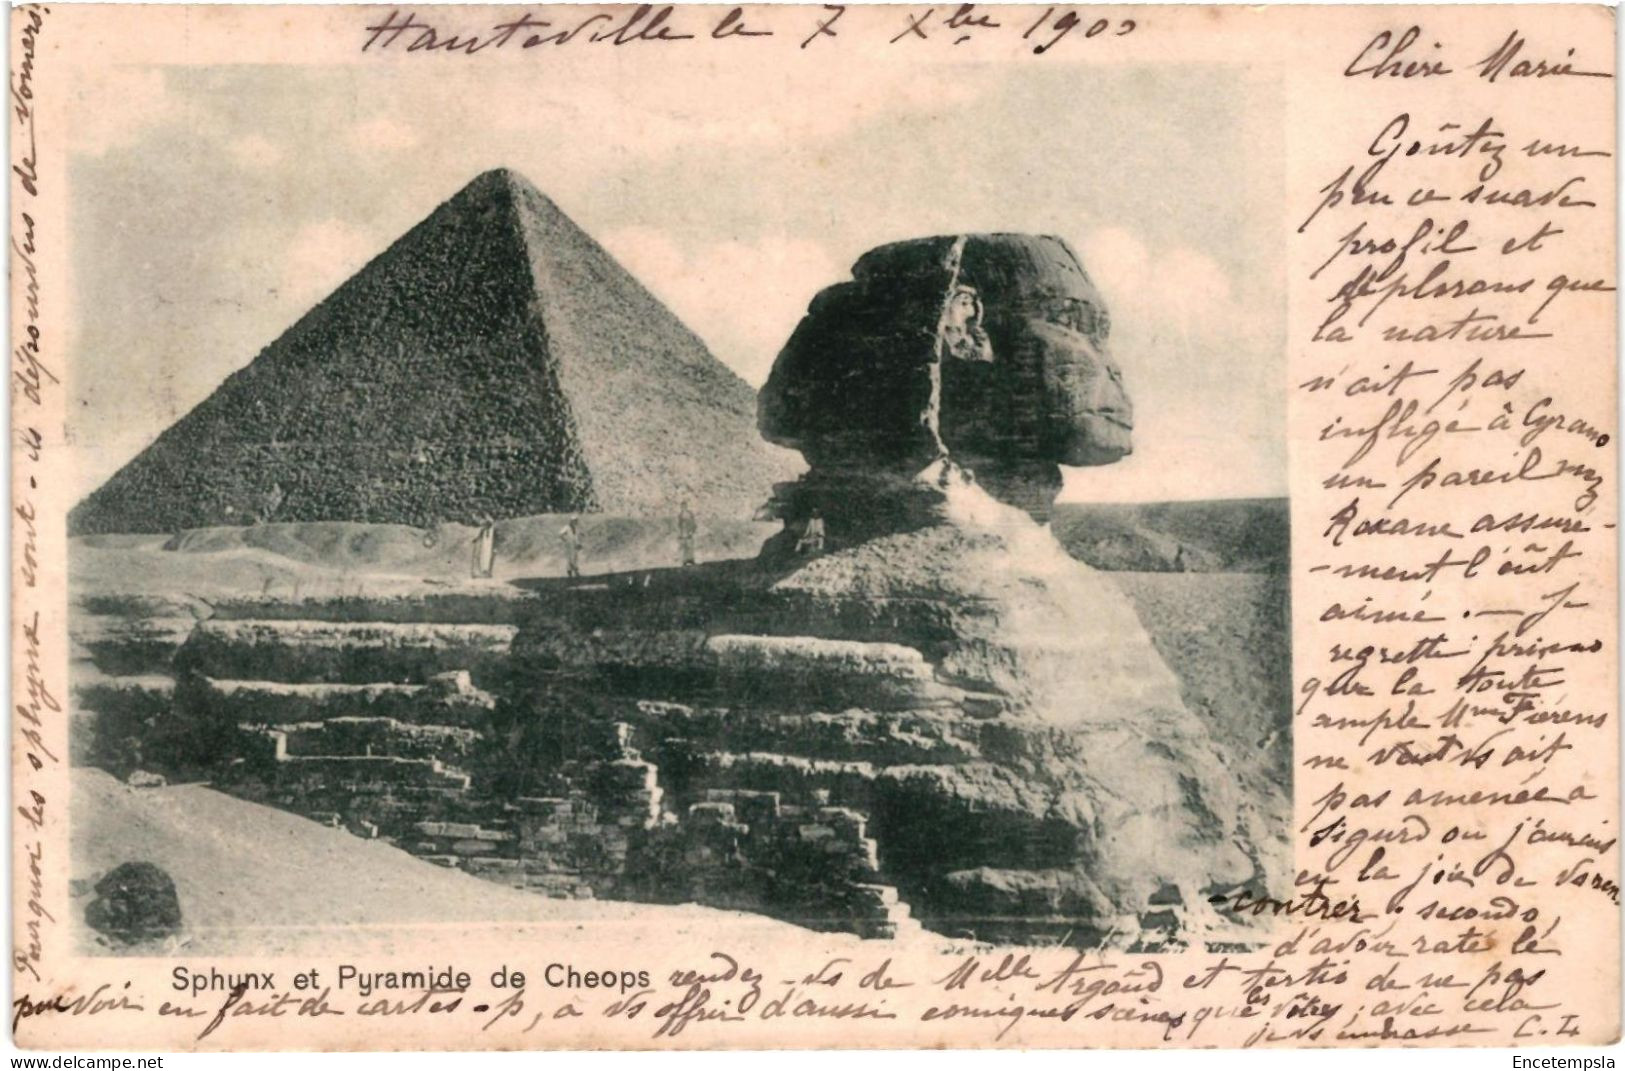 Hauteville le 7 Xbre 1900
Chère Marie
Goûtez un
peu ce suave
profil et
déplorons que
la nature
n'ait pas
infligé à Cyrano
un pareil nez
Roxane assuré-
-ment l'eût
aimé. — Je
regrette: primo
que la toute
ample Mme Fiérens
ne vs ait
pas amenée a
Sigurd ou j'aurais
eu la joie de vs ren
-contrer; secondo,
d'avoir raté le
Sphynx et Pyramide de Cheops rendez-vs de Melle Argaud et tertio de ne pas
pouvoir en fait de cartes-p, a vs offrir d'aussi comiques scènes que les vôtres; avec cela
je vs embrasse C. H
Pourquoi les sphynx sont-ils dépourvus de vomers!
Encetempsla